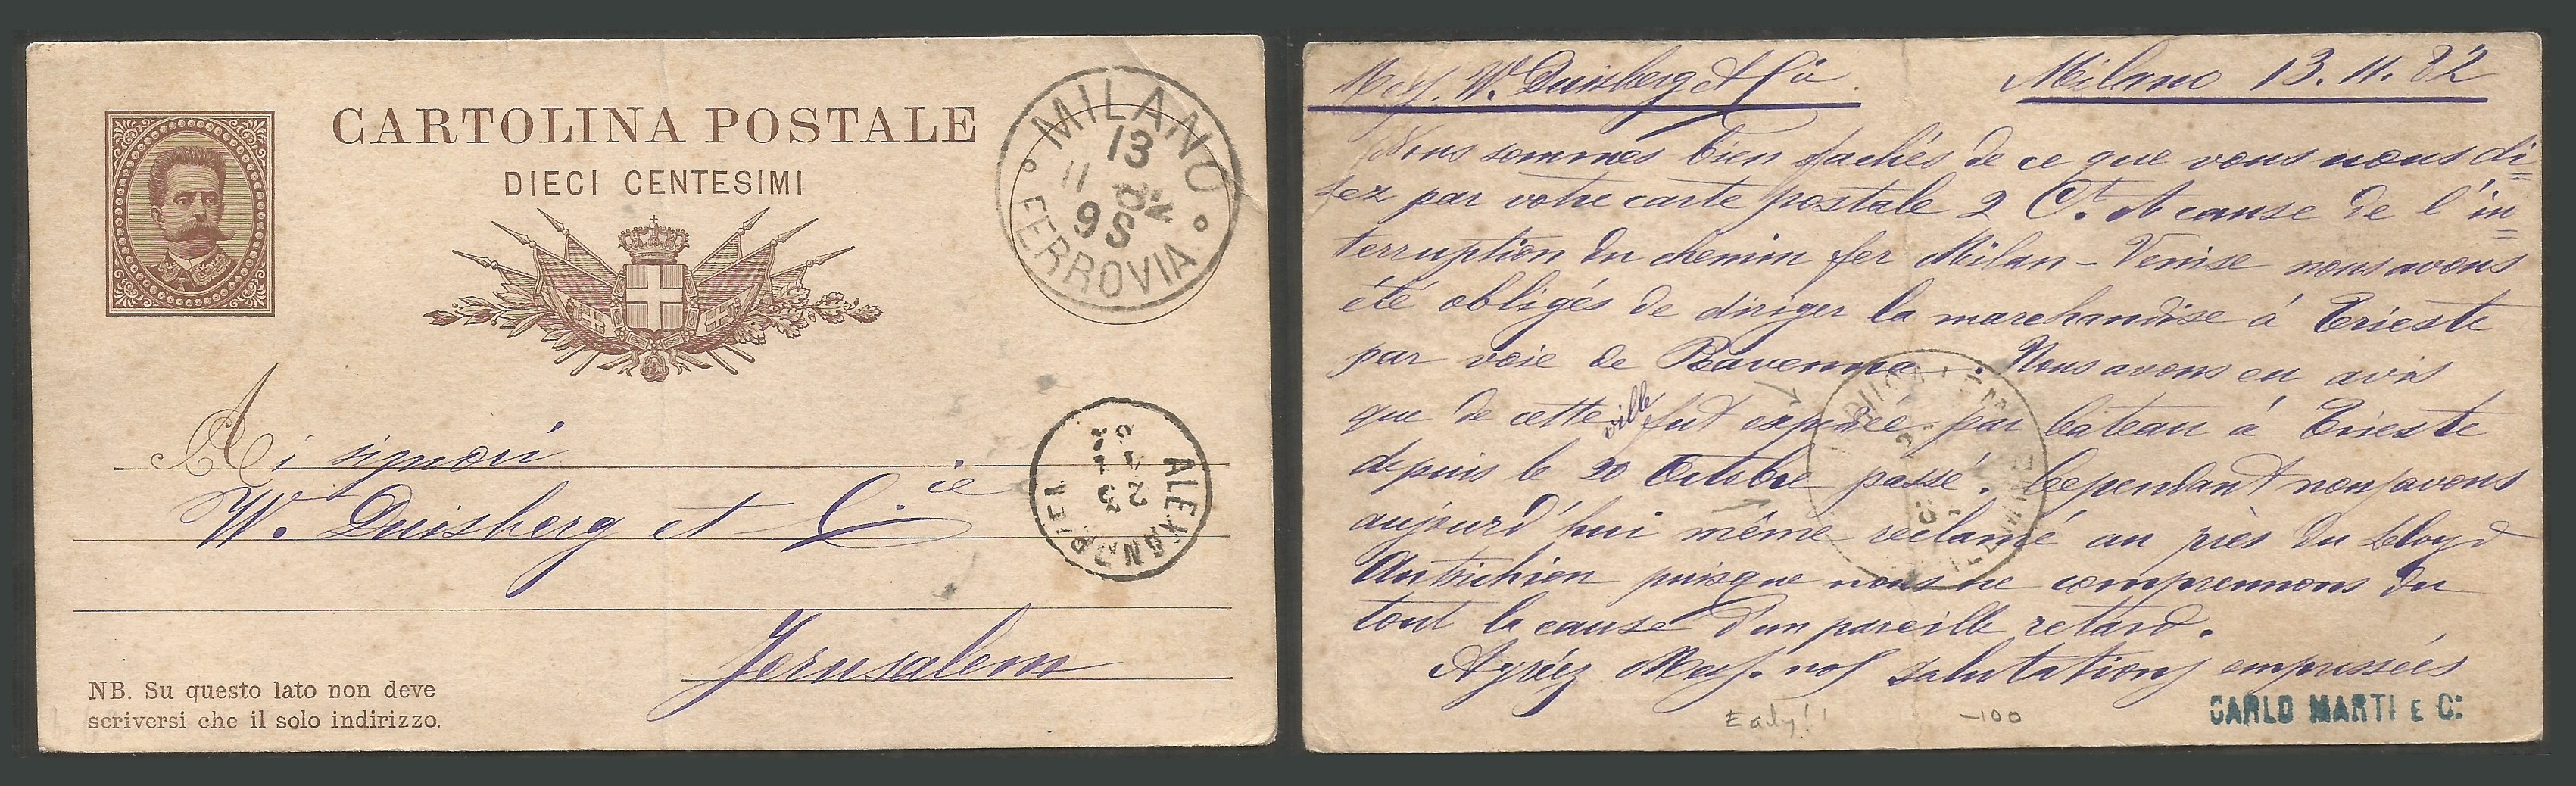 CARTOLINA POSTALE
DIECI CENTESIMI
MILANO
13
11 82
9 S
FERROVIA
Ai signori
W. Duisberg et C.ie
Jerusalem
ALEXANDRIE
NB. Su questo lato non deve
scriversi che il solo indirizzo.
Mess. W. Duisberg et Cie Milano 13.11.82
Nous sommes bien fachés de ce que vous nous di=
tez par votre carte postale 2 Ct. A cause de l'in=
terruption du chemin fer Milan - Venise nous avons
été obligés de diriger la marchandise á Trieste
par voie de Ravenna. Nous avons eu avis
que de cette ville fut expediée par bateau á Trieste
depuis le 20 Octobre passé. Cependant nous avons
aujourd'hui même reclamé au près du Lloyd
Autrichien puisque nous ne comprennons du
tout la cause d'un pareille retard.
Agréez Mess. nos salutations empressées
Early!!
-100
CARLO MARTI E C: